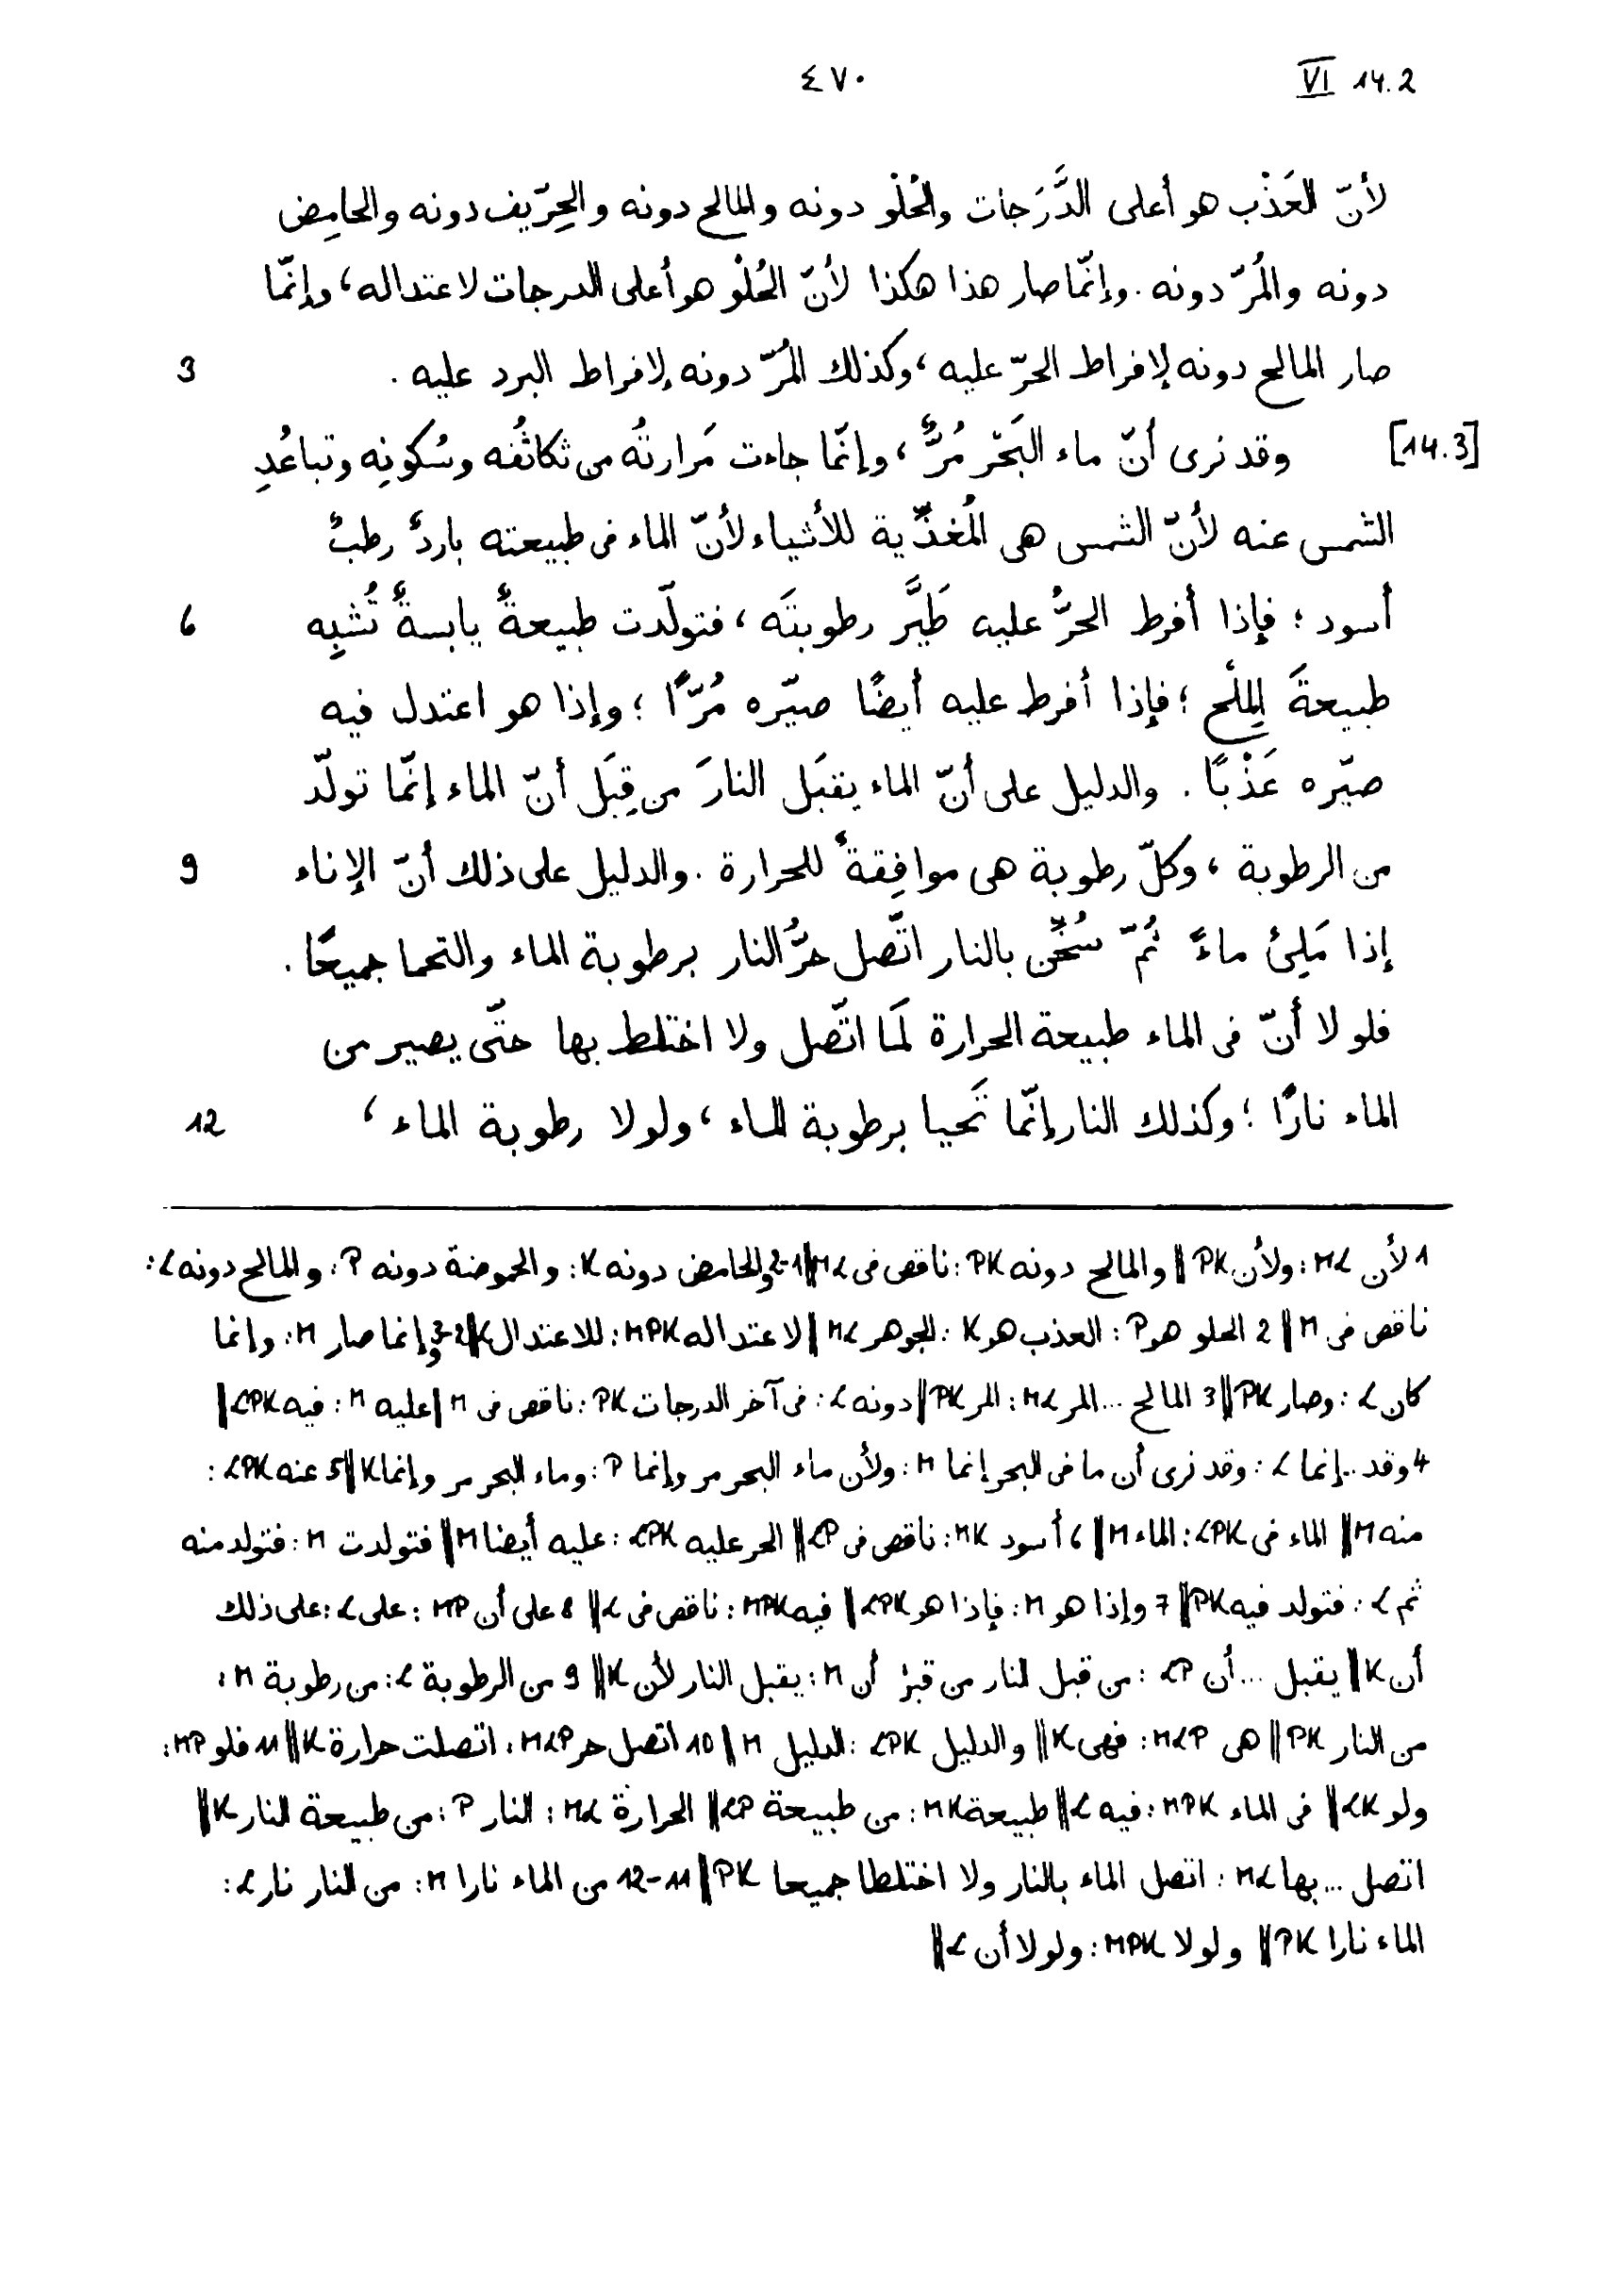 ٤٧٠ VI 14.2
لأنّ العَذْب هو أعلى الدَّرَجات والحُلْو دونه والمالح دونه والحِرّيف دونه والحامِض
دونه والمُرّ دونه. وإنّما صار هذا هكذا لأنّ الحُلْو هو أعلى الدرجات لاعتداله، وإنّما
صار المالح دونه لإفراط الحرّ عليه، وكذلك المُرّ دونه لإفراط البرد عليه. 3
[14.3] وقد نرى أنّ ماء البَحْر مُرٌّ، وإنّما جاءت مَرارتُه من تكاثُفه وسُكونِه وتباعُدِ
الشمس عنه لأنّ الشمس هى المُغذِّية للأشياء لأنّ الماء فى طبيعته باردٌ رطبٌ
أسود؛ فإذا أفرط الحرُّ عليه طَيَّر رطوبتَه، فتولّدت طبيعةٌ يابسةٌ تُشبِه 6
طبيعةَ المِلْح؛ فإذا أفرط عليه أيضًا صيّره مُرًّا؛ وإذا هو اعتدل فيه
صيّره عَذْبًا. والدليل على أنّ الماء يقبَل النارَ من قِبَل أنّ الماء إنّما تولّد
من الرطوبة، وكلّ رطوبة هى موافِقةٌ للحرارة. والدليل على ذلك أنّ الإناء 9
إذا مَلِئ ماءً ثُمّ سُخِّن بالنار اتّصل حرُّ النار برطوبة الماء والتحما جميعًا.
فلولا أنّ فى الماء طبيعة الحرارة لَما اتّصل ولا اختلط بها حتّى يصير من
الماء نارًا؛ وكذلك النار إنّما تَحيا برطوبة الماء، ولولا رطوبة الماء، 12
1 لأن ML: ولأن PK ‖ والمالح دونه PK: ناقص فى ML ‖ 1-2 والحامض دونه K: والحموضة دونه P: والمالح دونه L:
ناقص فى M ‖ 2 الحلو هو P: العذب هو K: الجوهر ML ‖ لاعتداله MPK: للاعتدال L ‖ 2-3 وإنما صار M: وإنما
كان L: وصار PK ‖ 3 المالح ... المر ML: المر PK ‖ دونه L: فى آخر الدرجات PK: ناقص فى M ‖ عليه M: فيه LPK ‖
4 وقد ... إنما L: وقد نرى أن ما فى البحر إنما M: ولأن ماء البحر مر وإنما P: وماء البحر مر وإنما K ‖ 5 عنه LPK:
منه M ‖ الماء فى LPK: الماء M ‖ 6 أسود MK: ناقص فى LP ‖ الحر عليه LPK: عليه أيضا M ‖ فتولدت M: فتولد منه
ثم L: فتولد فيه PK ‖ 7 وإذا هو M: فإذا هو LPK ‖ فيه MPK: ناقص فى L ‖ 8 على أن MP: على L: على ذلك
أن K ‖ يقبل ... أن LP: من قبل النار من قبل أن M: يقبل النار لأن K ‖ 9 من الرطوبة L: من رطوبة M:
من النار PK ‖ هى MLP: فهى K ‖ والدليل LPK: الدليل M ‖ 10 اتصل حر MLP: اتصلت حرارة K ‖ 11 فلو MP:
ولو LK ‖ فى الماء MPK: فيه L ‖ طبيعة MK: من طبيعة LP ‖ الحرارة ML: النار P: من طبيعة النار K ‖
اتصل ... بها ML: اتصل الماء بالنار ولا اختلطا جميعا PK ‖ 11-12 من الماء نارا M: من النار نار L:
الماء نارا PK ‖ ولولا MPK: ولولا أن L ‖